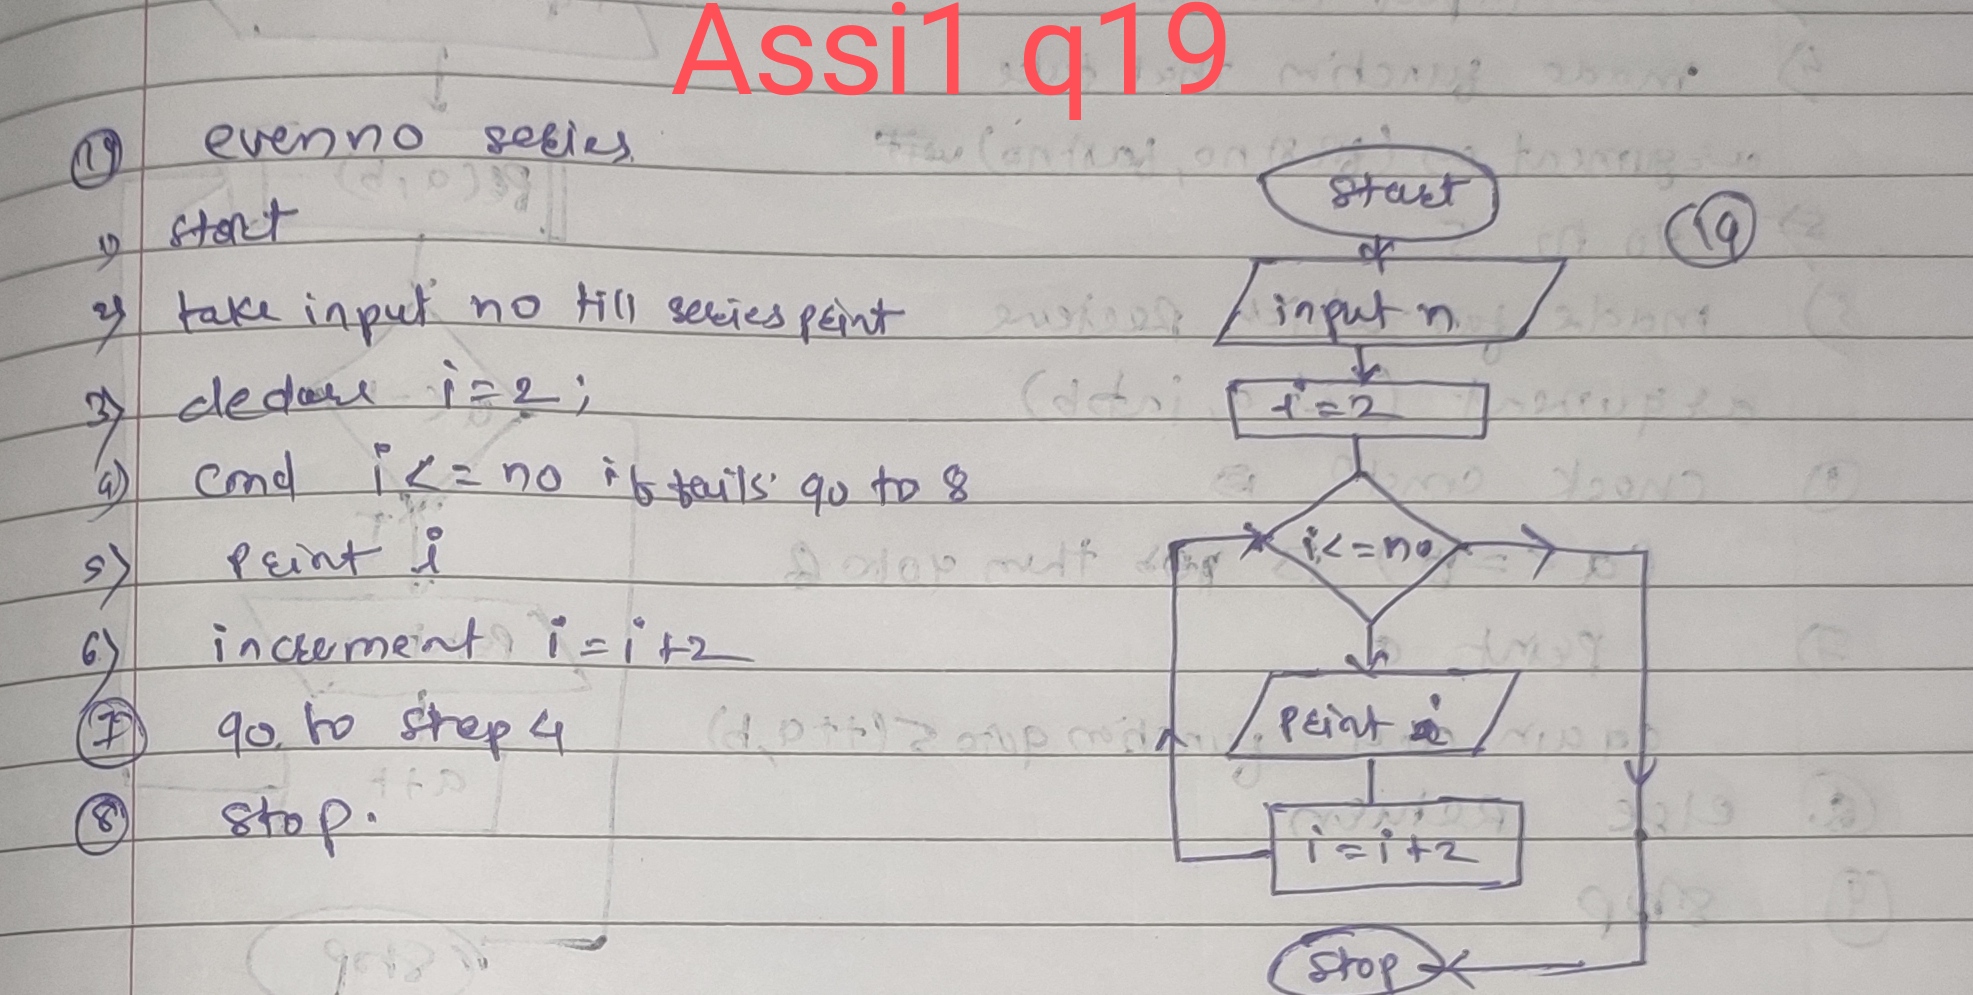 Assi1 q19
19 even no series.
1) start
2) take input no till series print
3) declare i=2;
4) cond i<=no if fails go to 8
5) print i
6) increment i=i+2
7 go to step 4
8 stop.
19
start
input n
i=2
i<=no
print i
i=i+2
stop